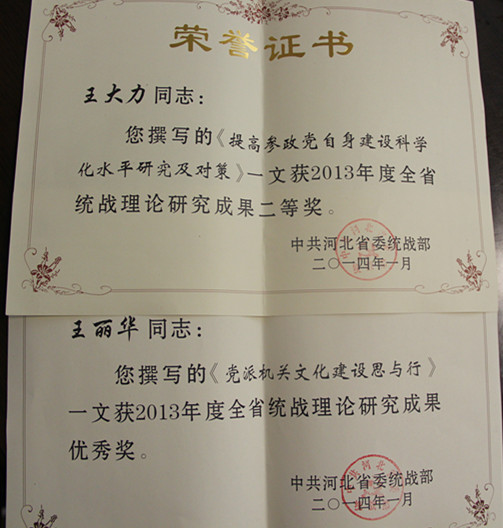 荣誉证书
王大力同志：
您撰写的《提高参政党自身建设科学
化水平研究及对策》一文获2013年度全省
统战理论研究成果二等奖。
中共河北省委统战部
二〇一四年一月
王丽华同志：
您撰写的《党派机关文化建设思与行》
一文获2013年度全省统战理论研究成果
优秀奖。
中共河北省委统战部
二〇一四年一月